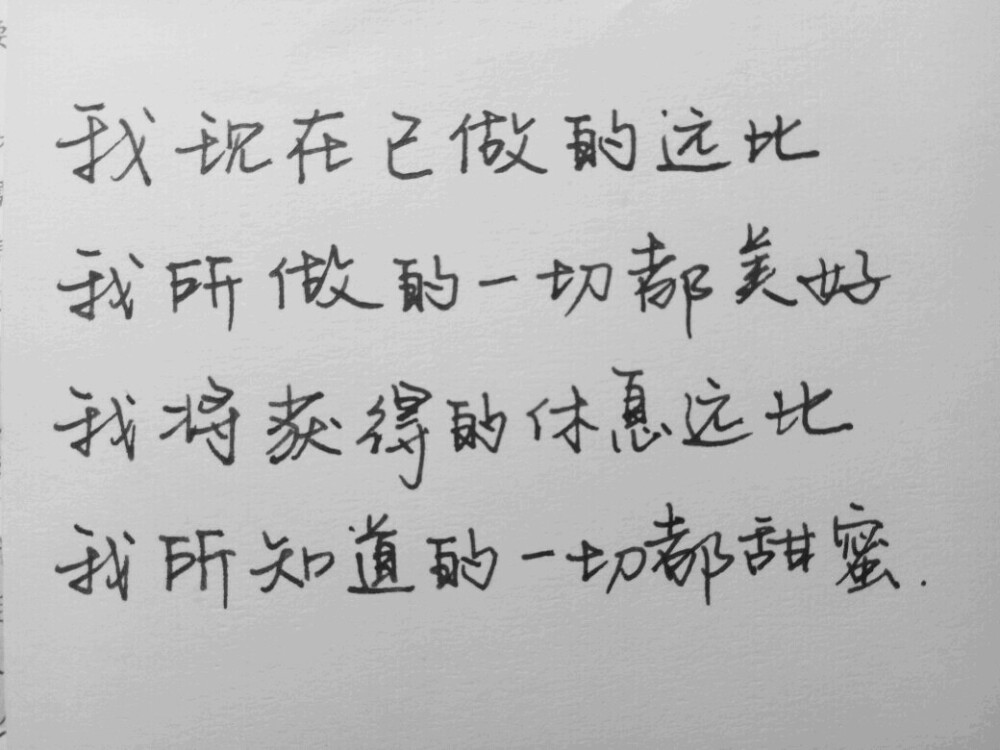 我现在已做的远比
我所做的一切都美好
我将获得的休息远比
我所知道的一切都甜蜜.